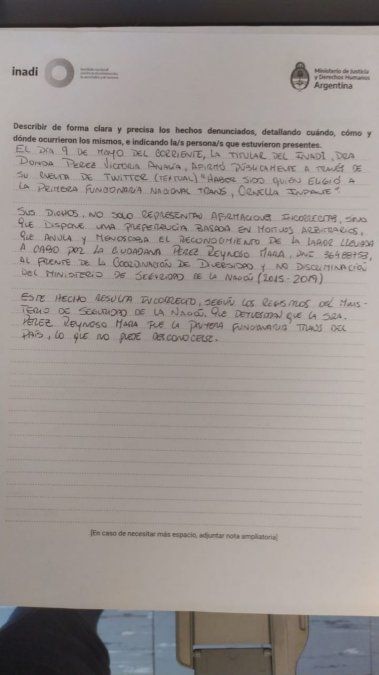 inadi
Ministerio de Justicia
y Derechos Humanos
Argentina
Describir de forma clara y precisa los hechos denunciados, detallando cuándo, cómo y
dónde ocurrieron los mismos, e indicando la/s persona/s que estuvieron presentes.
EL DÍA 9 DE MAYO DEL CORRIENTE, LA TITULAR DEL INADI, DRA
DONDA PEREZ VICTORIA ANALÍA, AFIRMÓ PÚBLICAMENTE A TRAVÉS DE
SU CUENTA DE TWITTER (TEXTUAL) "HABER SIDO QUIEN ELIGIÓ A
LA PRIMERA FUNCIONARIA NACIONAL TRANS, ORNELLA INFANTE".
SUS DICHOS, NO SOLO REPRESENTAN AFIRMACIONES INCORRECTAS, SINO
QUE DISPONE UNA PREFERENCIA BASADA EN MOTIVOS ARBITRARIOS,
QUE ANULA Y MENOSCABA EL RECONOCIMIENTO DE LA LABOR LLEVADA
A CABO POR LA CIUDADANA PÉREZ REYNOSO MARA, DNI
AL FRENTE DE LA COORDINACIÓN DE DIVERSIDAD Y NO DISCRIMINACIÓN
DEL MINISTERIO DE SEGURIDAD DE LA NACIÓN (2015-2019)
ESTE HECHO RESULTA INCORRECTO, SEGÚN LOS REGISTROS DEL MINIS-
TERIO DE SEGURIDAD DE LA NACIÓN, QUE DEMUESTRAN QUE LA SRA.
PÉREZ REYNOSO MARA FUE LA PRIMERA FUNCIONARIA TRANS DEL
PAÍS, LO QUE NO PUEDE DESCONOCERSE.
[En caso de necesitar más espacio, adjuntar nota ampliatoria]